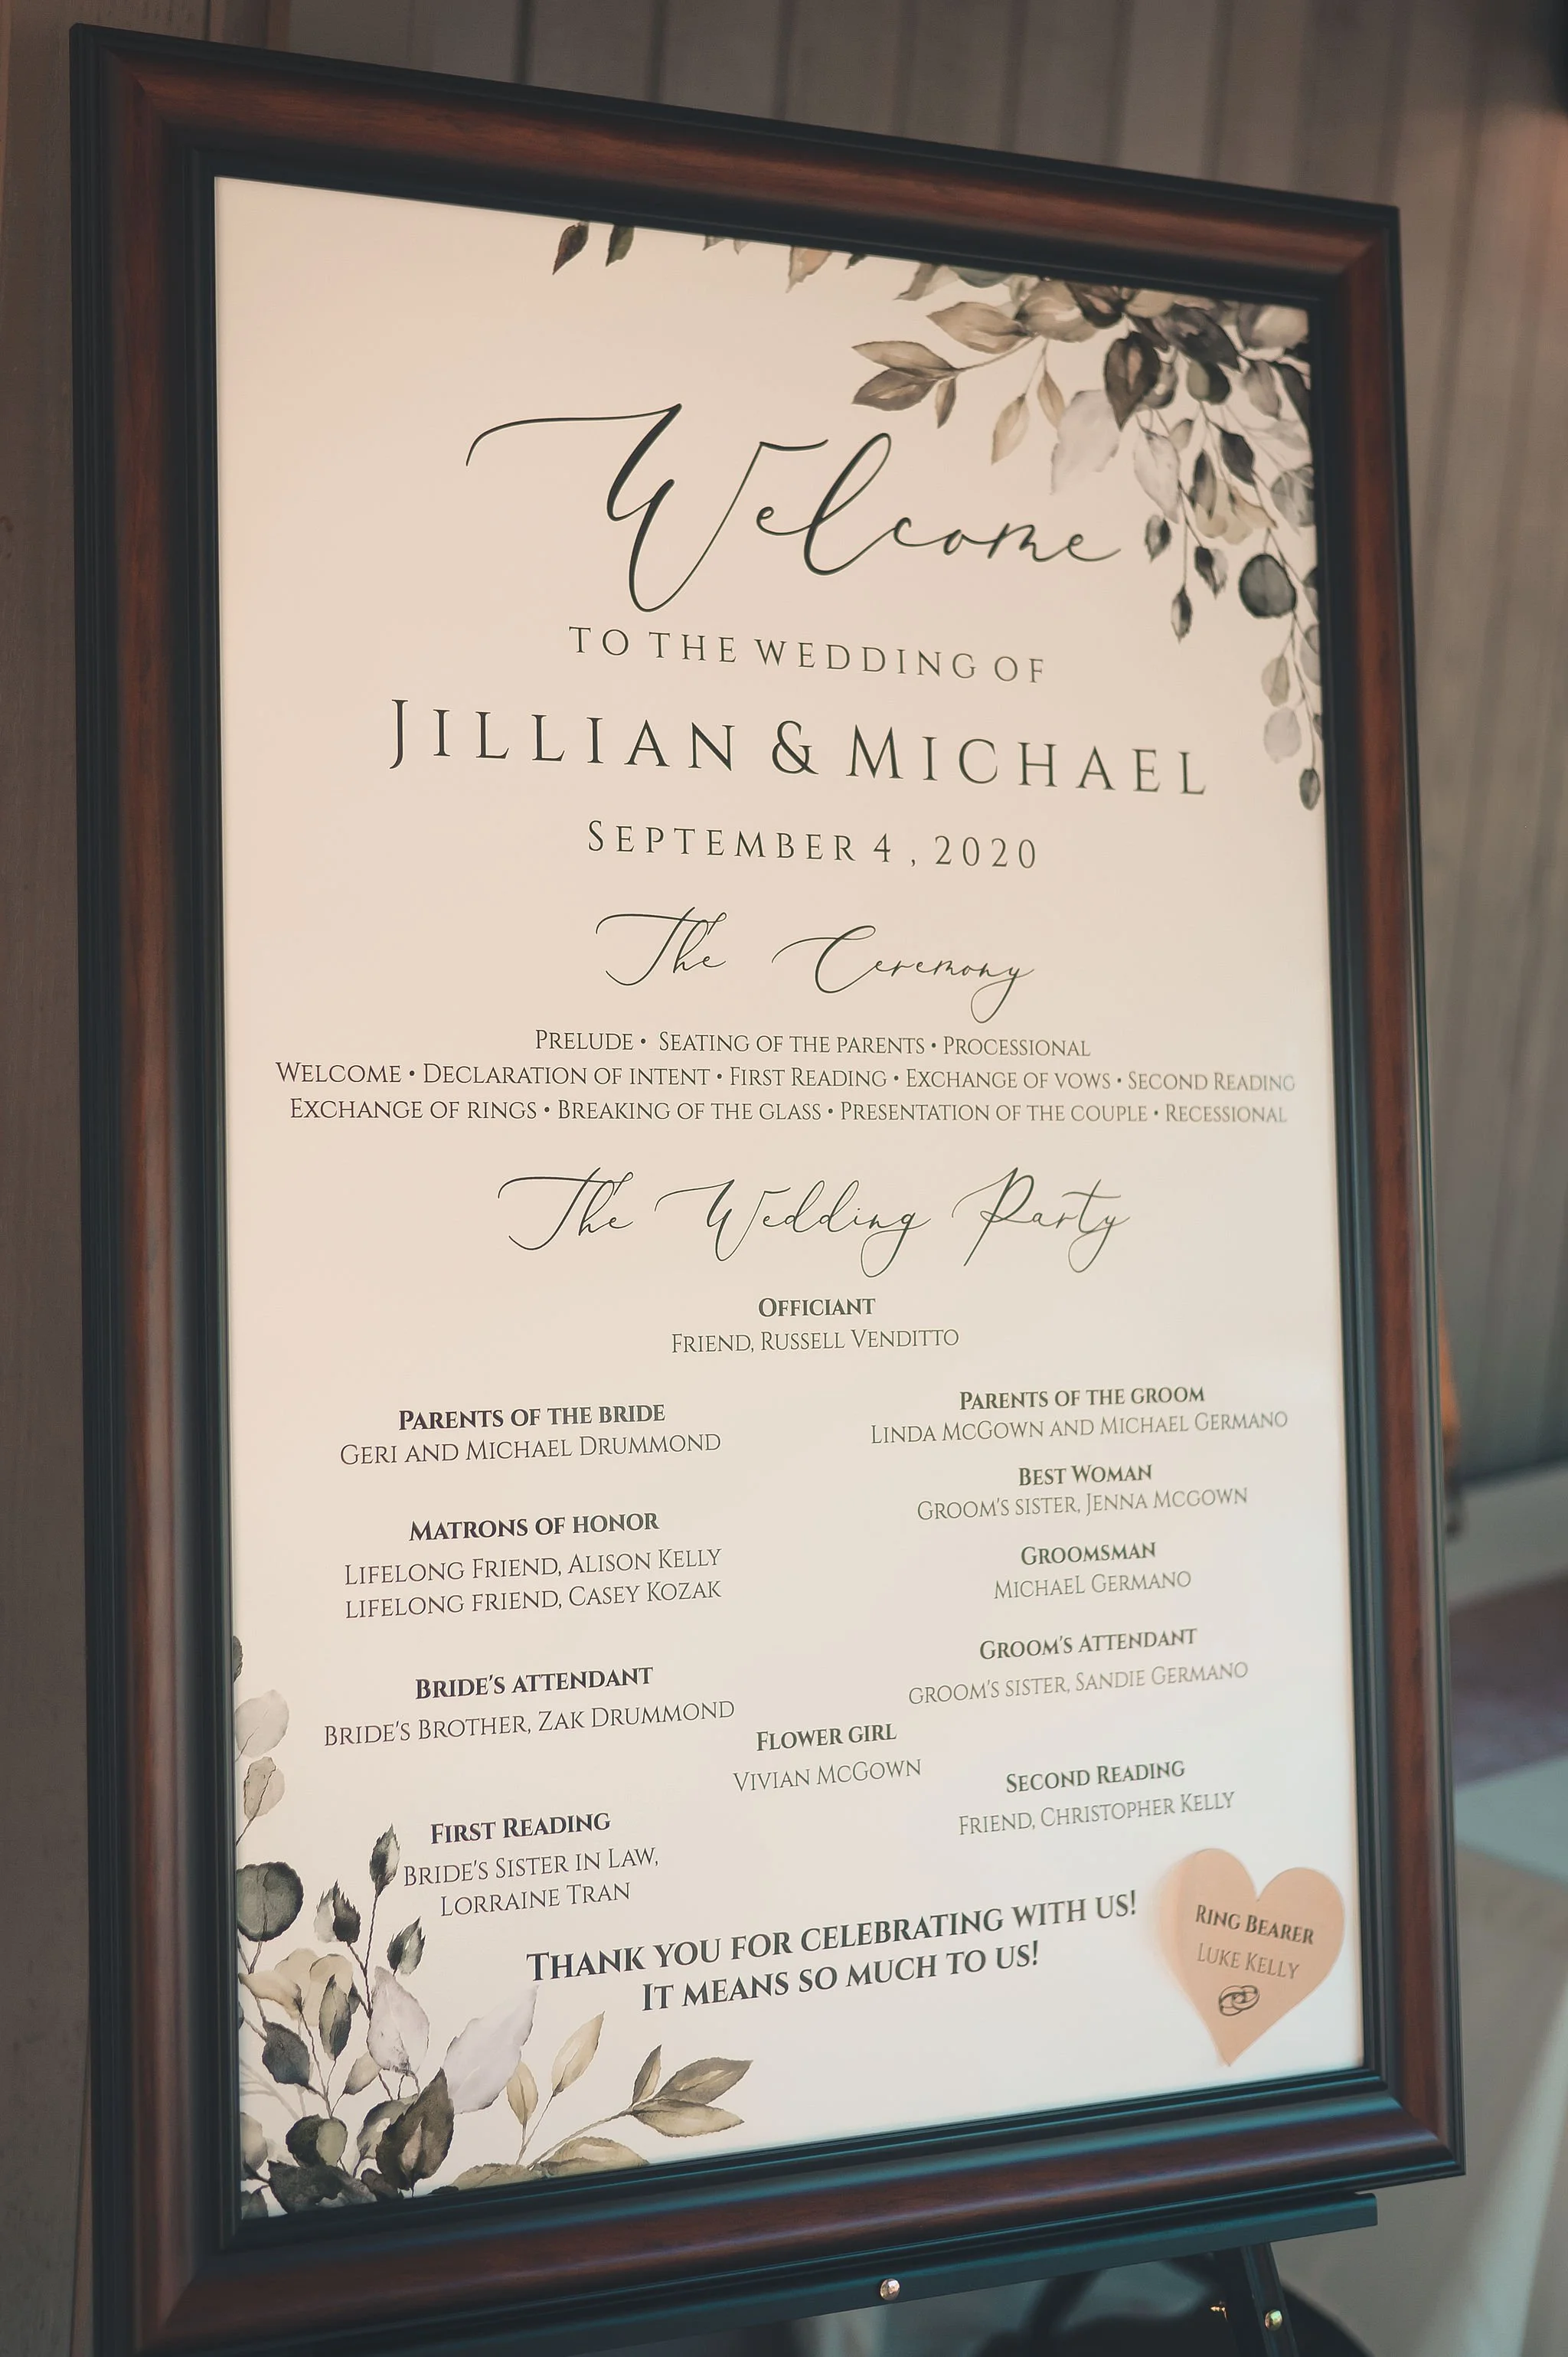 Welcome
TO THE WEDDING OF
JILLIAN & MICHAEL
SEPTEMBER 4 , 2020
The Ceremony
PRELUDE • SEATING OF THE PARENTS • PROCESSIONAL
WELCOME • DECLARATION OF INTENT • FIRST READING • EXCHANGE OF VOWS • SECOND READING
EXCHANGE OF RINGS • BREAKING OF THE GLASS • PRESENTATION OF THE COUPLE • RECESSIONAL
The Wedding Party
OFFICIANT
FRIEND, RUSSELL VENDITTO
PARENTS OF THE BRIDE
GERI AND MICHAEL DRUMMOND
MATRONS OF HONOR
LIFELONG FRIEND, ALISON KELLY
LIFELONG FRIEND, CASEY KOZAK
BRIDE'S ATTENDANT
BRIDE'S BROTHER, ZAK DRUMMOND
FIRST READING
BRIDE'S SISTER IN LAW,
LORRAINE TRAN
PARENTS OF THE GROOM
LINDA MCGOWN AND MICHAEL GERMANO
BEST WOMAN
GROOM'S SISTER, JENNA MCGOWN
GROOMSMAN
MICHAEL GERMANO
GROOM'S ATTENDANT
GROOM'S SISTER, SANDIE GERMANO
FLOWER GIRL
VIVIAN MCGOWN
SECOND READING
FRIEND, CHRISTOPHER KELLY
THANK YOU FOR CELEBRATING WITH US!
IT MEANS SO MUCH TO US!
RING BEARER
LUKE KELLY